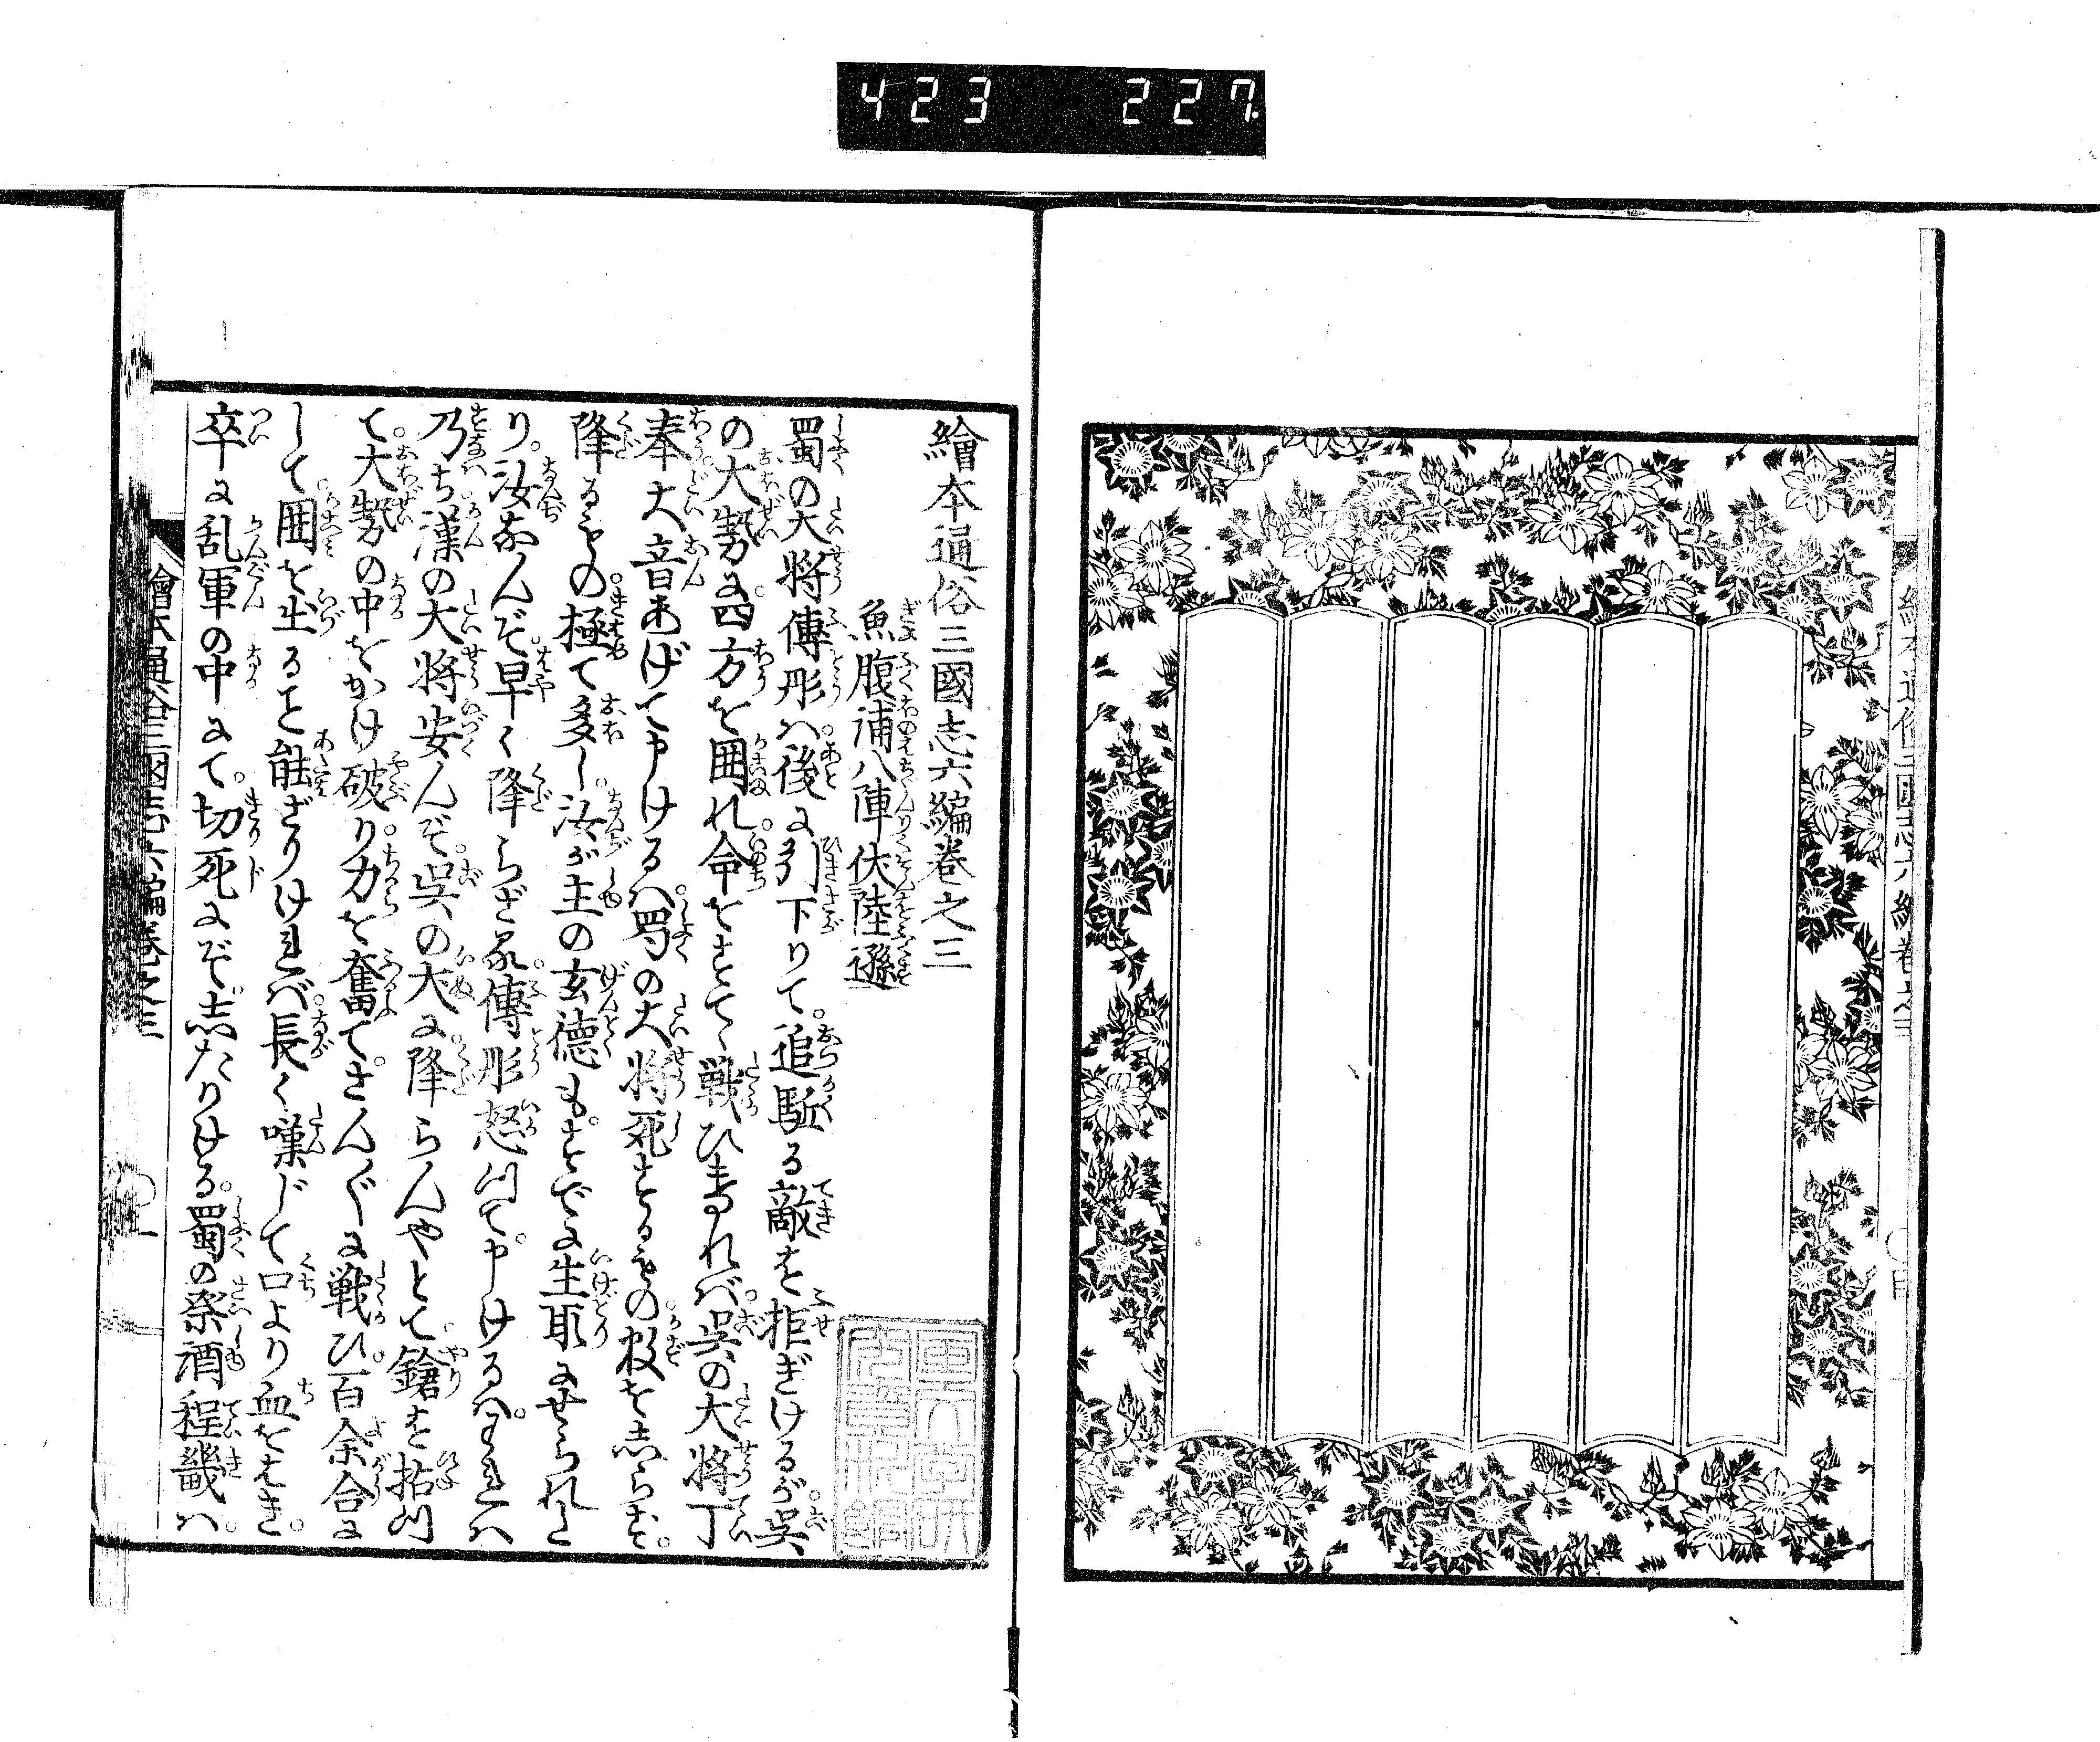 423 227
繪本通俗三國志六編巻之三
魚腹浦八陣伏陸遜
蜀の大将傅彤ハ。後に引下りて。追駈る敵を拒ぎけるが。呉
の大勢に。四方を囲れ。命をすてゝ戦ひけれバ。呉の大将丁
奉大音あげて申けるハ。蜀の大将死するもの数をしらず。
降るもの。極て多し。汝が主の玄徳も。すでに生取にせられた
り。汝なんぞ。早く降らざる。傅彤怒つて。申けるハ。われハ
乃ち。漢の大将安んぞ。呉の犬に。降らんやとて。鎗を拈つ
て。大勢の中をかけ破り。力を奮て。さん〴〵に戦ひ。百余合に
して。囲を出ること能ざりけれバ。長く嘆じて口より血をはき。
卒に乱軍の中にて。切死にぞ。したりける。蜀の祭酒程畿ハ。
繪本通俗三國志六編巻之三